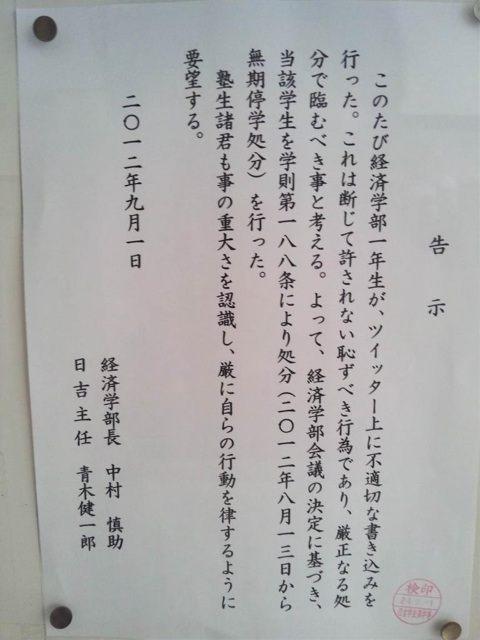 告示
このたび経済学部一年生が、ツイッター上に不適切な書き込みを
行った。これは断じて許されない恥ずべき行為であり、厳正なる処
分で臨むべき事と考える。よって、経済学部会議の決定に基づき、
当該学生を学則第一八八条により処分（二〇一二年八月一三日から
無期停学処分）を行った。
塾生諸君も事の重大さを認識し、厳に自らの行動を律するように
要望する。
二〇一二年九月一日
経済学部長 中村 慎助
日吉主任 青木健一郎
検印